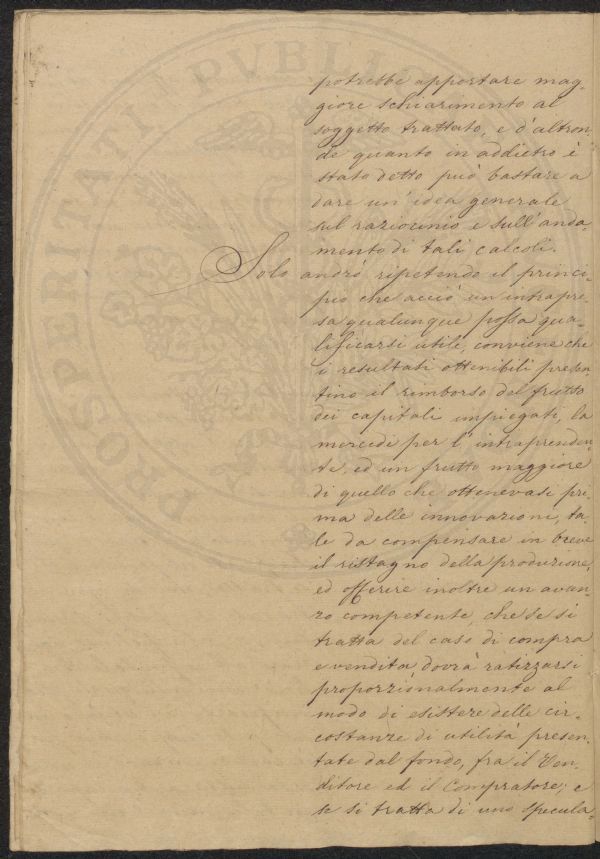 PROSPERITATI PVBLI
potrebbe apportare mag-
giore schiarimento al
soggetto trattato, e d'altron
de quanto in addietro è
stato detto può bastare a
dare un'idea generale
sul raziocinio e sull'anda-
mento di tali calcoli.
Solo andrò ripetendo il princi-
pio che acciò un intrapre-
sa qualunque possa qua-
lificarsi utile, conviene che
i resultati ottenibili presen-
tino il rimborso del frutto
dei capitali impiegati, la
mercede per l'intraprenden-
te, ed un frutto maggiore
di quello che ottenevasi pri-
ma delle innovazioni, ta-
le da compensare in breve
il ristagno della produzione,
ed offerire inoltre un avan-
zo competente, che se si
tratta del caso di compra
e vendita dovrà ratizzarsi
proporzionalmente al
modo di esistere delle cir-
costanze di utilità presen-
tate dal fondo, fra il Ven-
ditore ed il Compratore; e
se si tratta di uno specula-